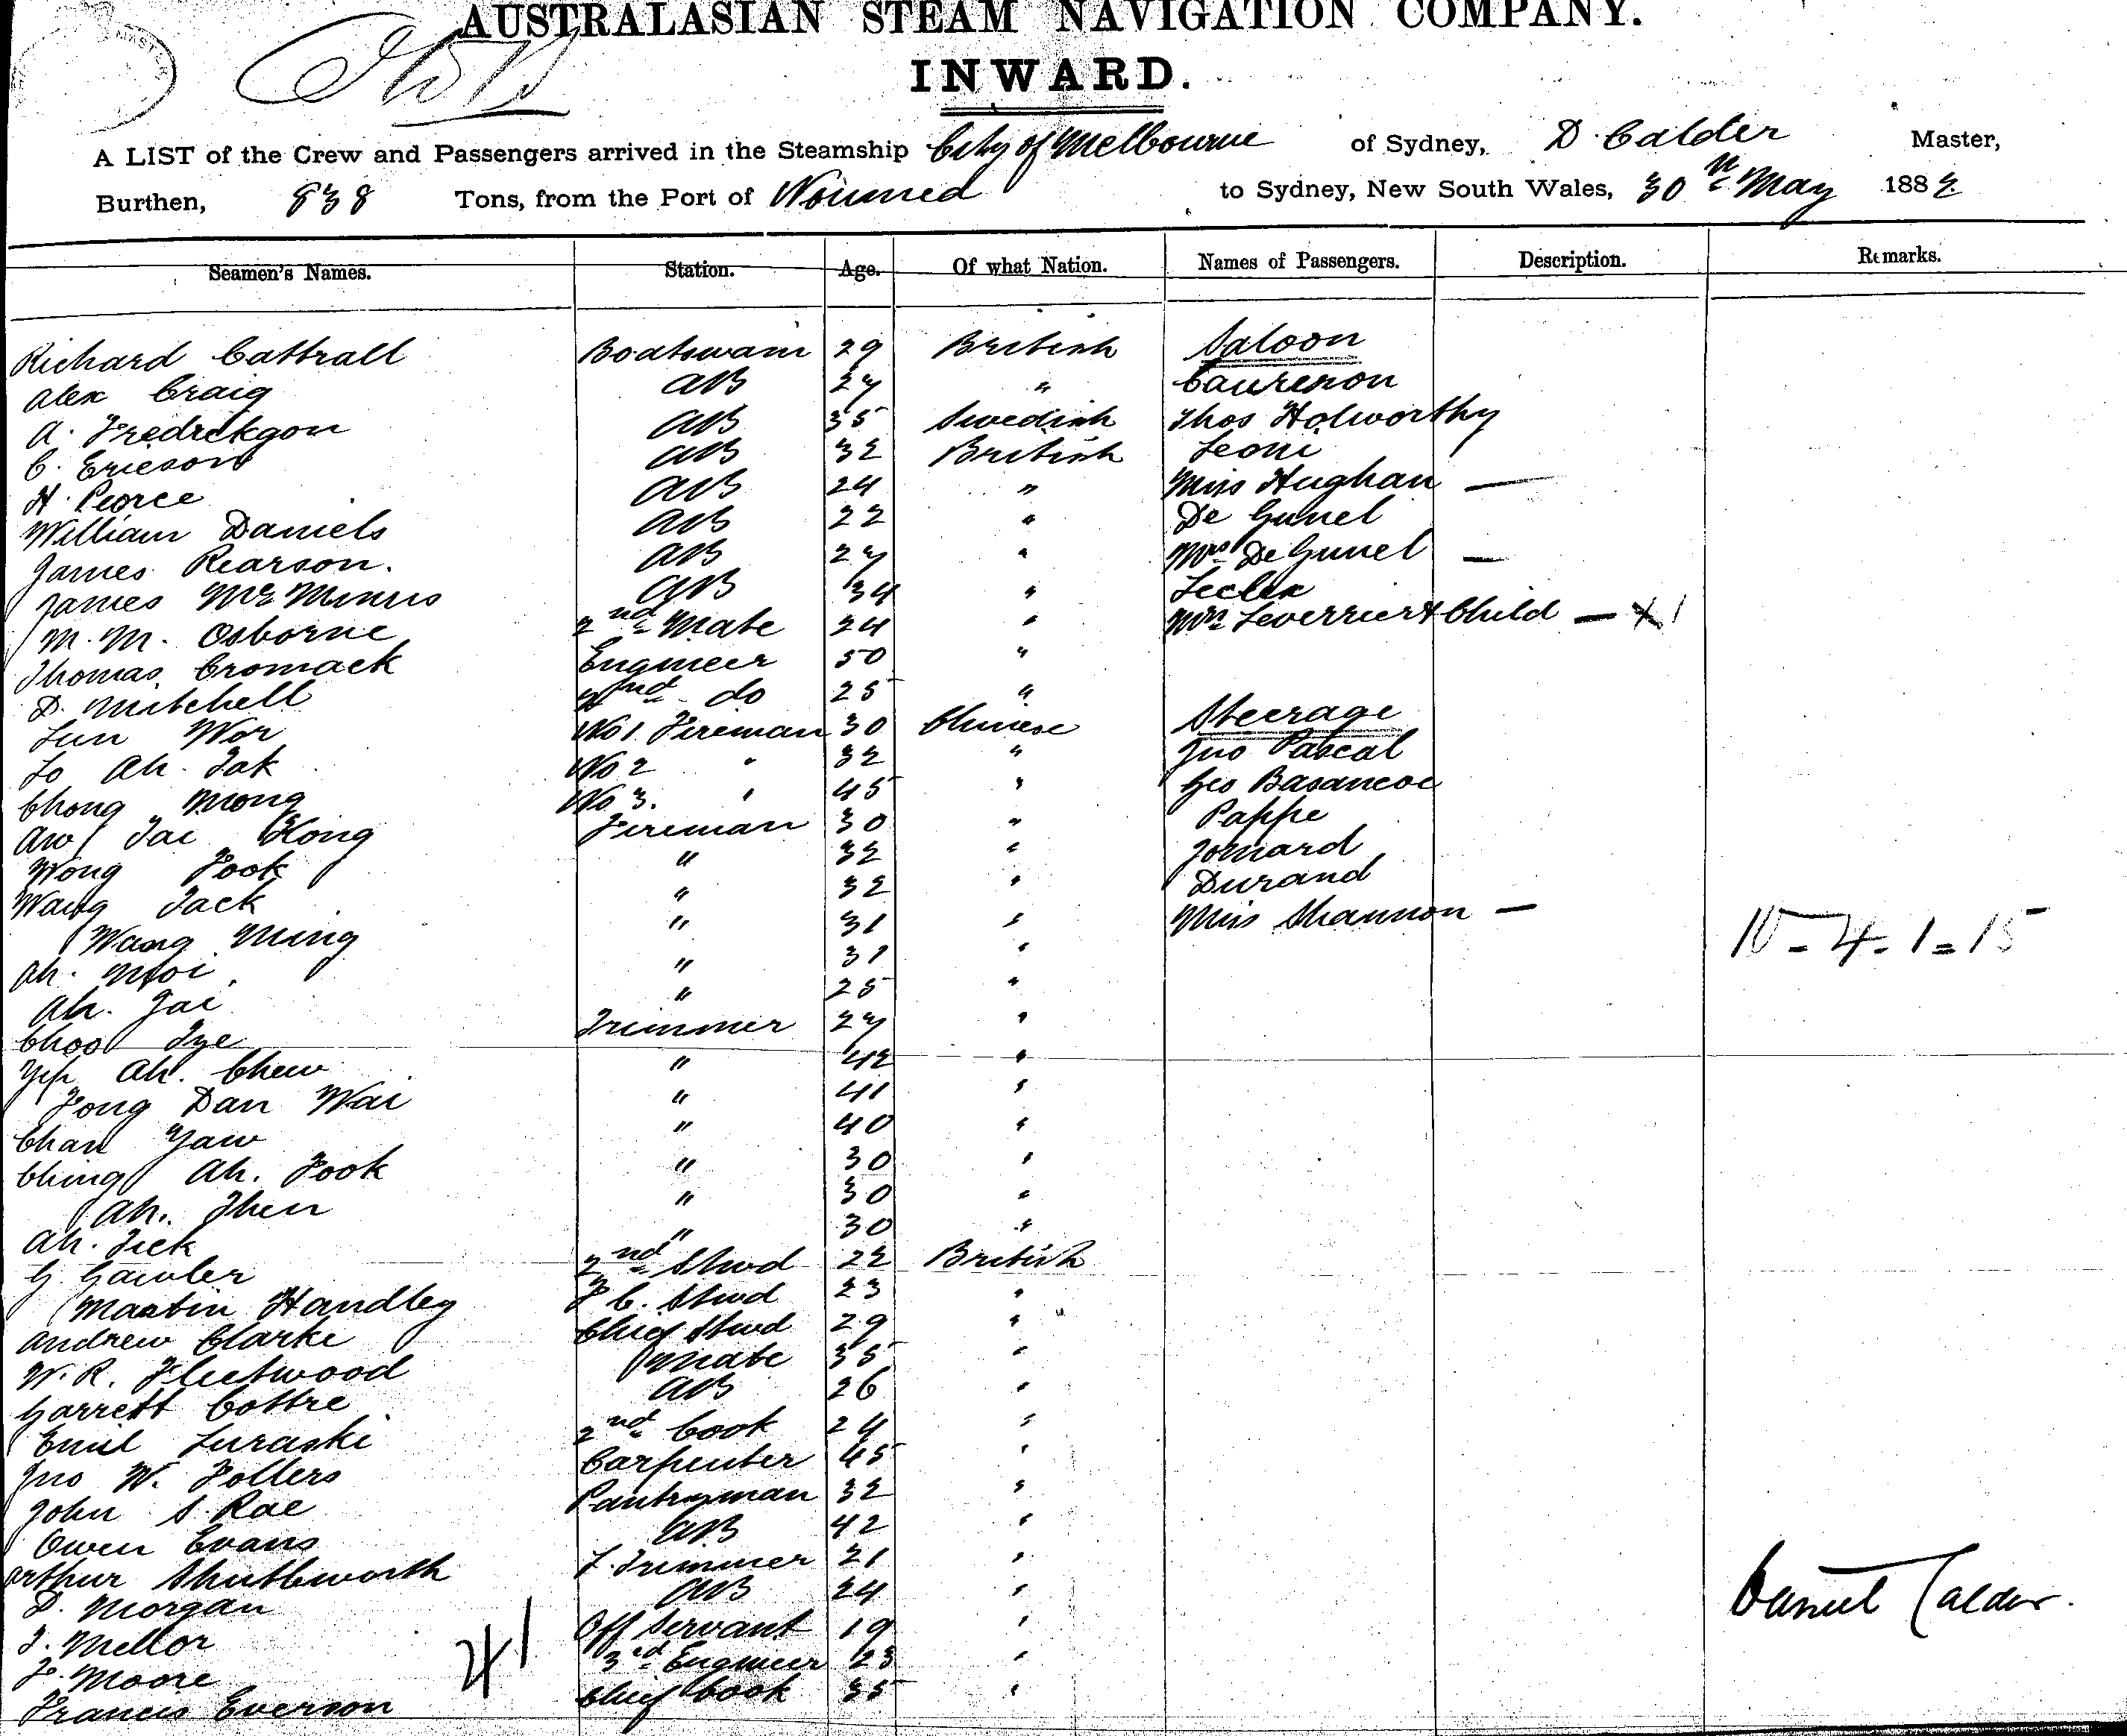 AUSTRALASIAN STEAM NAVIGATION COMPANY.
INWARD.
A LIST of the Crew and Passengers arrived in the Steamship City of Melbourne of Sydney, D. Calder Master,
Burthen, 838 Tons, from the Port of Noumea to Sydney, New South Wales, 30th May 1882
Seamen's Names. Station. Age. Of what Nation. Names of Passengers. Description. Remarks.
Richard Cattrall Boatswain 29 British Saloon
Alex Craig AB 27 " Caurenon
A. Fredrekgon AB 35 Swedish Thos Holworthy
C. Ericson AB 32 British Leoni
H. Peorce AB 24 " Miss Hughan —
William Daniels AB 22 " De Gunel
James Pearson. AB 27 " Mrs De Gunel —
James McMinns AB 34 " Leclex
M. M. Osborne 2nd Mate 24 " Mrs Leverrier & Child — X 1
Thomas Cromack Engineer 50 "
D. Mitchell 2nd do 25 "
Lun Wor No 1 Fireman 30 Chinese Steerage
Lo Ah. Tak No 2 " 32 " Jno Pascal
Chong Mong No 3. " 45 " Geo Basancoe
Aw Tai Kong Fireman 30 " Pappe
Wong Fook " 32 " Jomard
Wang Jack " 32 " Durand
Wang Ming " 31 " Miss Shannon —
Ah. Moi " 31 "
Ah. Jai " 25 "
10 - 4 - 1 = 15
Choo Tye Trimmer 27 "
Yep Ah. Chew " 42 "
Fong Dan Wai " 41 "
Chan Yaw " 40 "
Ching Ah. Fook " 30 "
Ah. Then " 30 "
Ah. Tick " 30 "
G. Gawler 2nd Stwd 22 British
Martin Handley F C. Stwd 23 "
Andrew Clarke Chief Stwd 29 "
W. R. Fleetwood Mate 35 "
Garrett Cottre AB 26 "
Emil Luraski 2nd Cook 24 "
Jno W. Follers Carpenter 45 "
John S. Rae Pantryman 32 "
Owen Evans AB 42 "
Arthur Shuttleworth F. Trimmer 21 "
D. Morgan AB 24 "
J. Mellor Off Servant 19 "
F. Moore 3rd Engineer 23 "
Francis Everson Chief Cook 35 "
41
Daniel Calder.